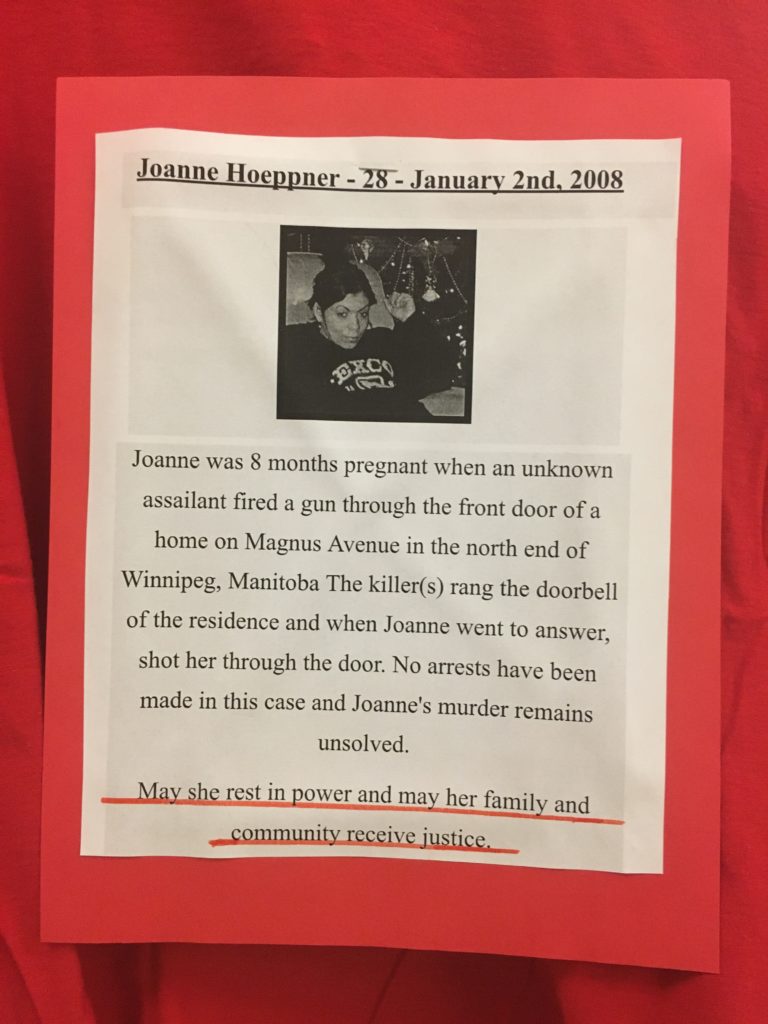 Joanne Hoeppner - 28 - January 2nd, 2008
EXCO
Joanne was 8 months pregnant when an unknown
assailant fired a gun through the front door of a
home on Magnus Avenue in the north end of
Winnipeg, Manitoba The killer(s) rang the doorbell
of the residence and when Joanne went to answer,
shot her through the door. No arrests have been
made in this case and Joanne's murder remains
unsolved.
May she rest in power and may her family and
community receive justice.